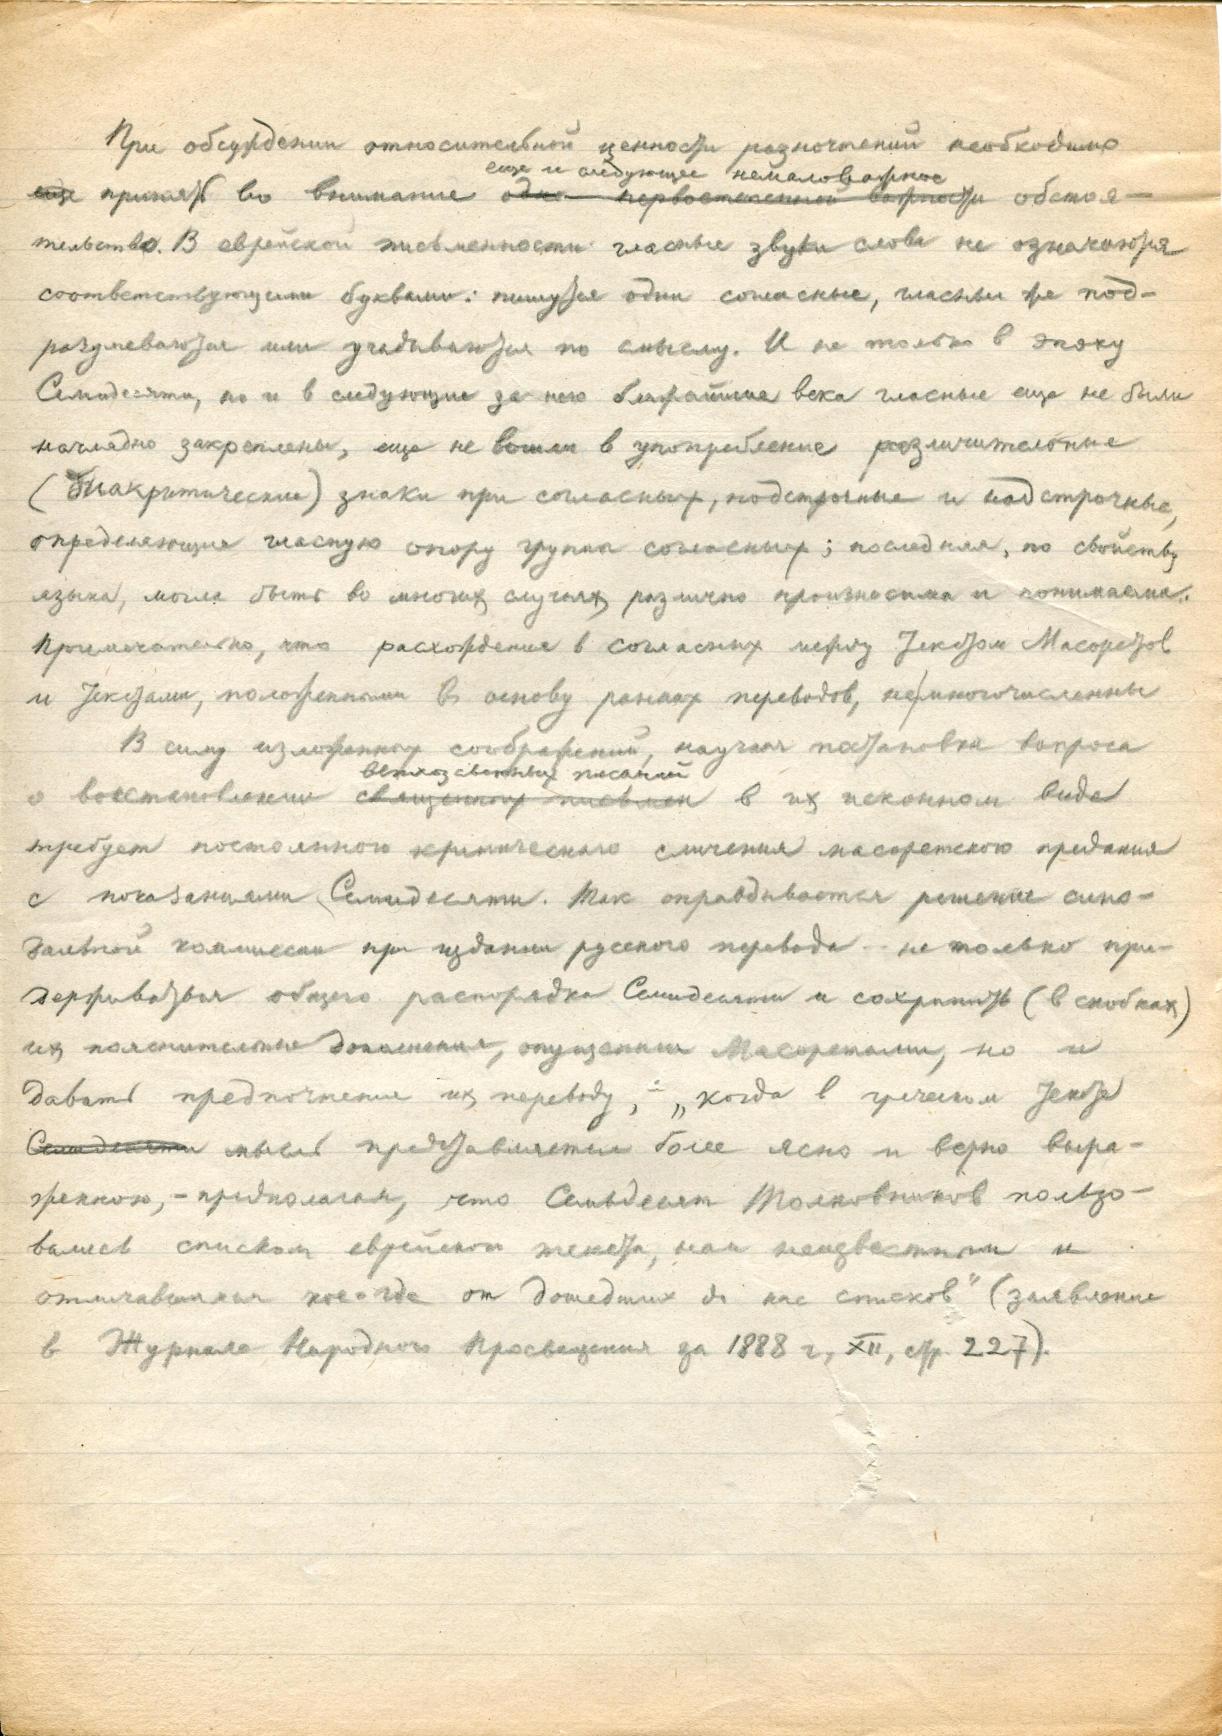 При обсуждении относительной ценности разночтений необходимо
еще и следующее немаловажное
еще принять во внимание одно первостепенной важности обстоя-
тельство. В еврейской письменности гласные звуки слова не означаются
соответствующими буквами: пишутся одни согласные, гласные же под-
разумеваются или угадываются по смыслу. И не только в эпоху
Семидесяти, но и в следующие за нею ближайшие века гласные еще не были
наглядно закреплены, еще не вошли в употребление различительные
(диакритические) знаки при согласных, подстрочные и надстрочные,
определяющие гласную опору групп согласных; последняя, по свойству
языка, могла быть во многих случаях различно произносима и понимаема.
Примечательно, что расхождения в согласных между текстом Масоретов
и текстами, положенными в основу ранних переводов, немногочисленны
В силу изложенных соображений, научная постановка вопроса
ветхозаветных писаний
о восстановлении священных письмен в их исконном виде
требует постоянного критического сличения масоретского предания
с показаниями Семидесяти. Так оправдывается решение сино-
дальной комиссии при издании русского перевода - не только при-
держиваться общего распорядка Семидесяти и сохранить (в скобках)
их пояснительные дополнения, опущенные Масоретами, но и
давать предпочтение их переводу, - „когда в греческом тексте
Семидесяти мысль представляется более ясно и верно выра-
женною, - предполагая, что Семьдесят Толковников пользо-
вались списком еврейского текста, нам неизвестным и
отличавшимся кое-где от дошедших до нас списков" (заявление
в Журнале Народного Просвещения за 1888 г, XII, стр. 227).